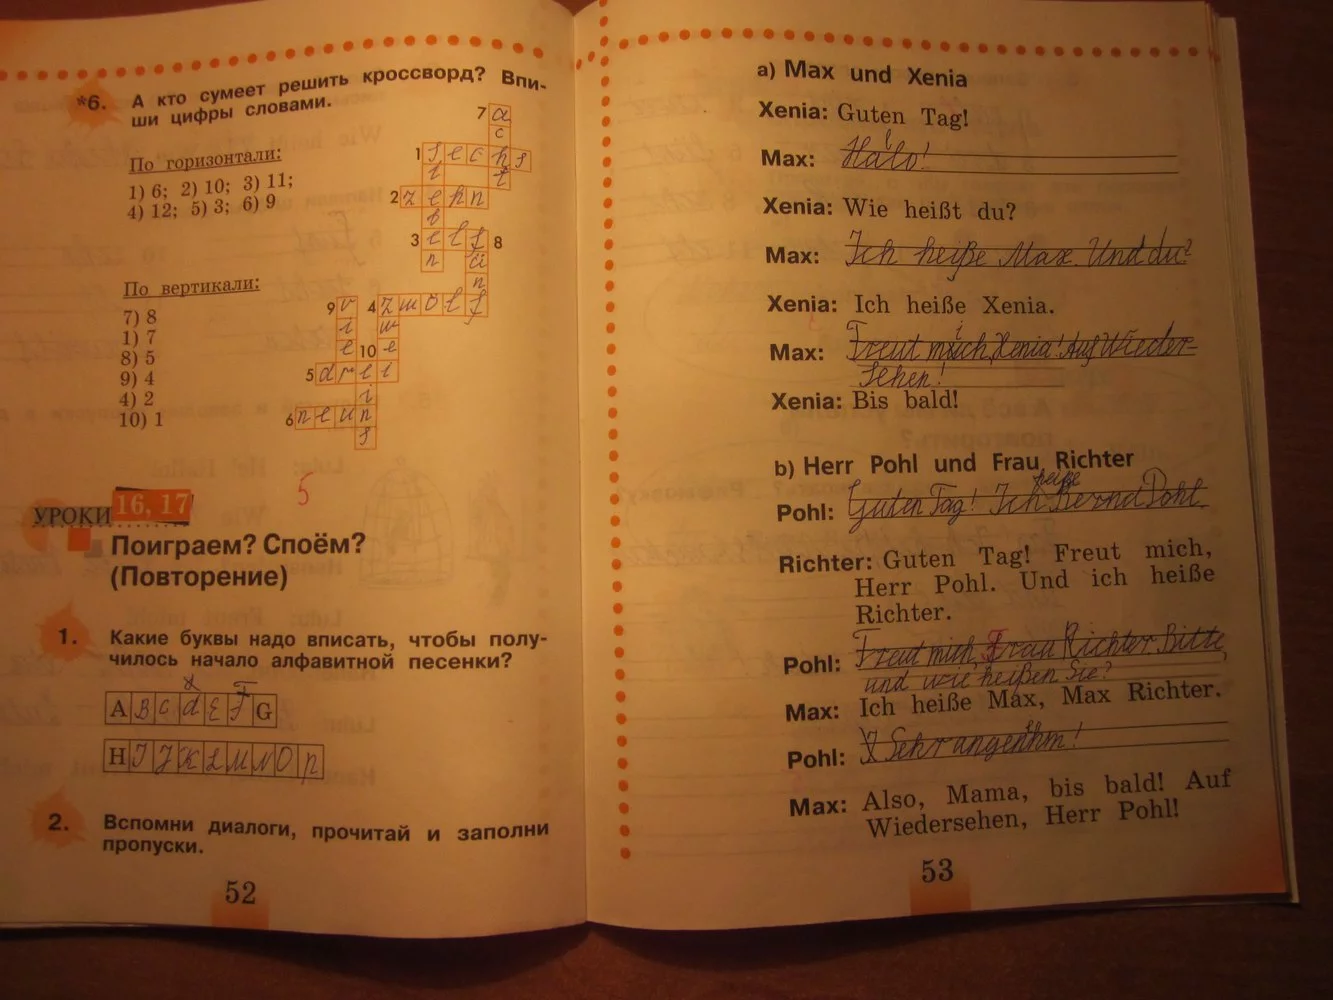 *6. А кто сумеет решить кроссворд? Впи-
ши цифры словами.
По горизонтали:
1) 6; 2) 10; 3) 11;
4) 12; 5) 3; 6) 9
По вертикали:
7) 8
1) 7
8) 5
9) 4
4) 2
10) 1
7 a
c
1 sechs
i t
2 zehn
b
3 elf 8
n ü
n
9 v 4 zwölf
i w
e 10 e
5 drei
i
6 neun
s
5
УРОКИ 16, 17
Поиграем? Споём?
(Повторение)
1. Какие буквы надо вписать, чтобы полу-
чилось начало алфавитной песенки?
F
A B C d E F G
H I J K L M N O P
2. Вспомни диалоги, прочитай и заполни
пропуски.
52
a) Max und Xenia
Xenia: Guten Tag!
l
Max: Halo!
Xenia: Wie heißt du?
Max: Ich heiße Max. Und du?
Xenia: Ich heiße Xenia.
Max: Freut mich, Xenia! Auf Wieder-
sehen!
Xenia: Bis bald!
b) Herr Pohl und Frau Richter
heiße
Pohl: Guten Tag! Ich Bernd Pohl
Richter: Guten Tag! Freut mich,
Herr Pohl. Und ich heiße
Richter.
Pohl: Freut mich, Frau Richter Bitte,
und wie heißen Sie?
Max: Ich heiße Max, Max Richter.
Pohl: Sehr angenehm!
Max: Also, Mama, bis bald! Auf
Wiedersehen, Herr Pohl!
53